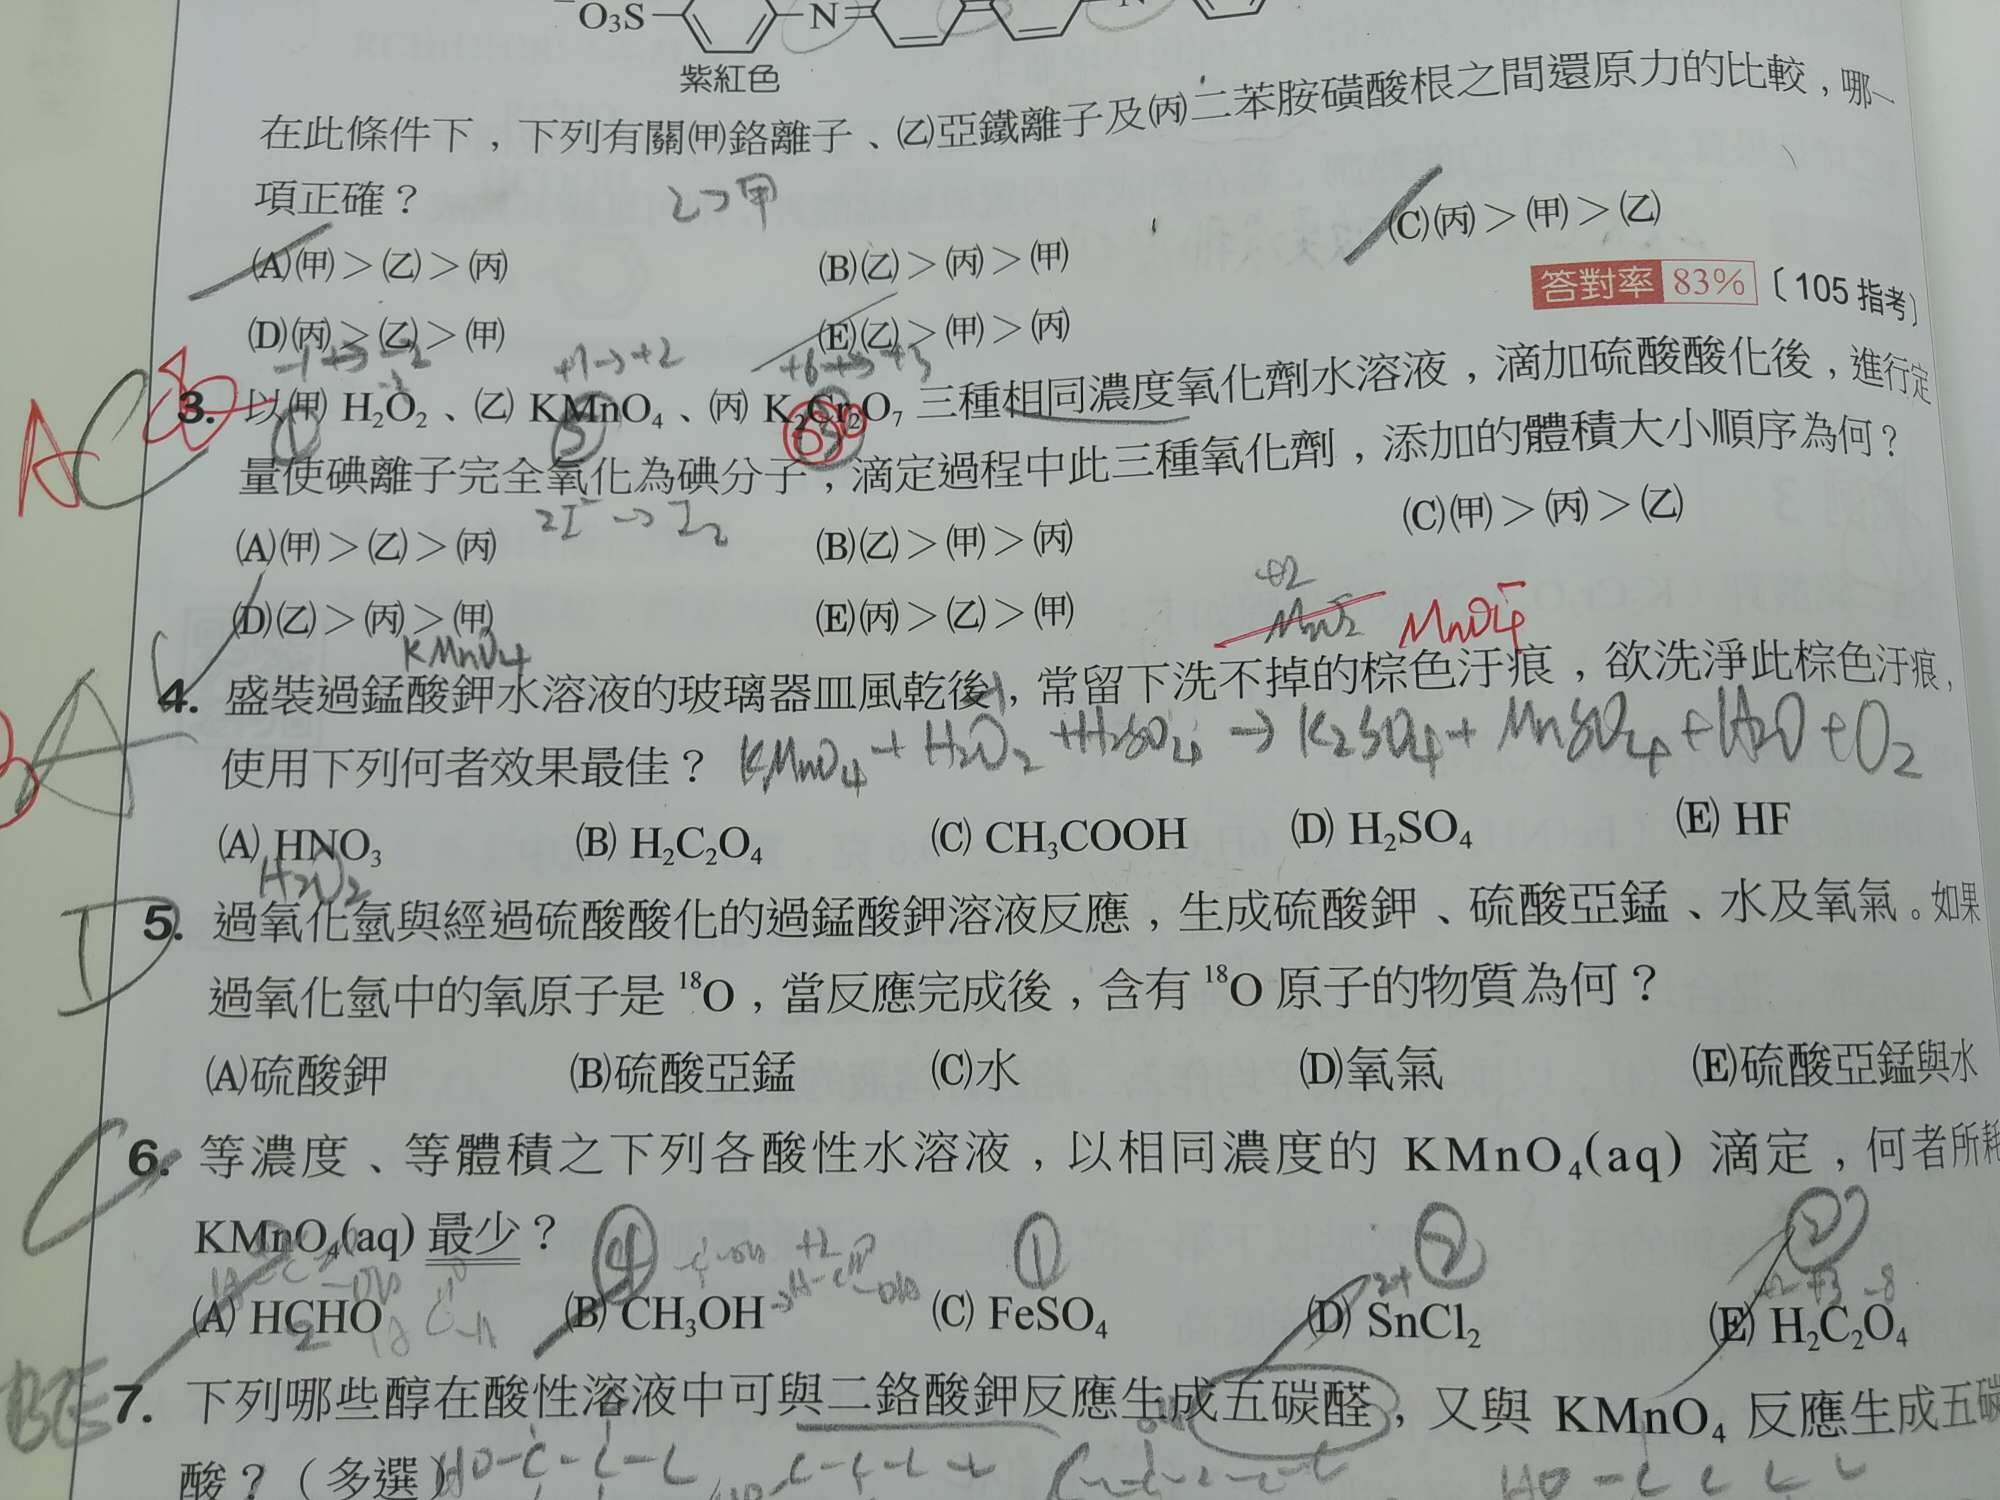 ⁻O₃S N N
紫紅色
在此條件下，下列有關㈙鉻離子、㈚亞鐵離子及㈛二苯胺磺酸根之間還原力的比較，哪一
項正確？
乙>甲
(A)(甲)＞(乙)＞(丙)
(B)(乙)＞(丙)＞(甲)
(C)(丙)＞(甲)＞(乙)
(D)(丙)＞(乙)＞(甲)
(E)(乙)＞(甲)＞(丙)
答對率 83% 〔105 指考〕
+7→+2
AC
3. 以(甲) H₂O₂、(乙) KMnO₄、(丙) K₂Cr₂O₇ 三種相同濃度氧化劑水溶液，滴加硫酸酸化後，進行定
① ⑤ ⑥
量使碘離子完全氧化為碘分子，滴定過程中此三種氧化劑，添加的體積大小順序為何？
2I⁻→I₂
(A)(甲)＞(乙)＞(丙)
(B)(乙)＞(甲)＞(丙)
(C)(甲)＞(丙)＞(乙)
(D)(乙)＞(丙)＞(甲)
(E)(丙)＞(乙)＞(甲)
+2
MnO₂ MnO₄⁻
KMnO₄
A
4. 盛裝過錳酸鉀水溶液的玻璃器皿風乾後，常留下洗不掉的棕色汙痕，欲洗淨此棕色汙痕，
使用下列何者效果最佳？
KMnO₄ + H₂O₂ + H₂SO₄ → K₂SO₄ + MnSO₄ + H₂O + O₂
(A) HNO₃ (B) H₂C₂O₄ (C) CH₃COOH (D) H₂SO₄ (E) HF
H₂O₂
D
5. 過氧化氫與經過硫酸酸化的過錳酸鉀溶液反應，生成硫酸鉀、硫酸亞錳、水及氧氣。如果
過氧化氫中的氧原子是 ¹⁸O，當反應完成後，含有 ¹⁸O 原子的物質為何？
(A)硫酸鉀 (B)硫酸亞錳 (C)水 (D)氧氣 (E)硫酸亞錳與水
C
6. 等濃度、等體積之下列各酸性水溶液，以相同濃度的 KMnO₄(aq) 滴定，何者所耗
KMnO₄(aq) 最少？
④ ① ② ②
(A) HCHO (B) CH₃OH (C) FeSO₄ (D) SnCl₂ (E) H₂C₂O₄
BE
7. 下列哪些醇在酸性溶液中可與二鉻酸鉀反應生成五碳醛，又與 KMnO₄ 反應生成五碳
酸？（多選）